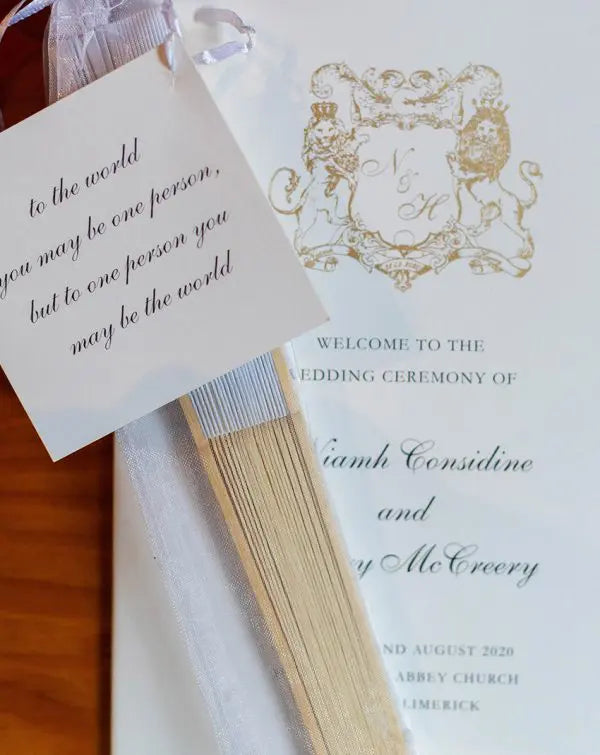 to the world
you may be one person,
but to one person you
may be the world
N
&
H
WELCOME TO THE
WEDDING CEREMONY OF
Niamh Considine
and
McCreery
ND AUGUST 2020
ABBEY CHURCH
LIMERICK